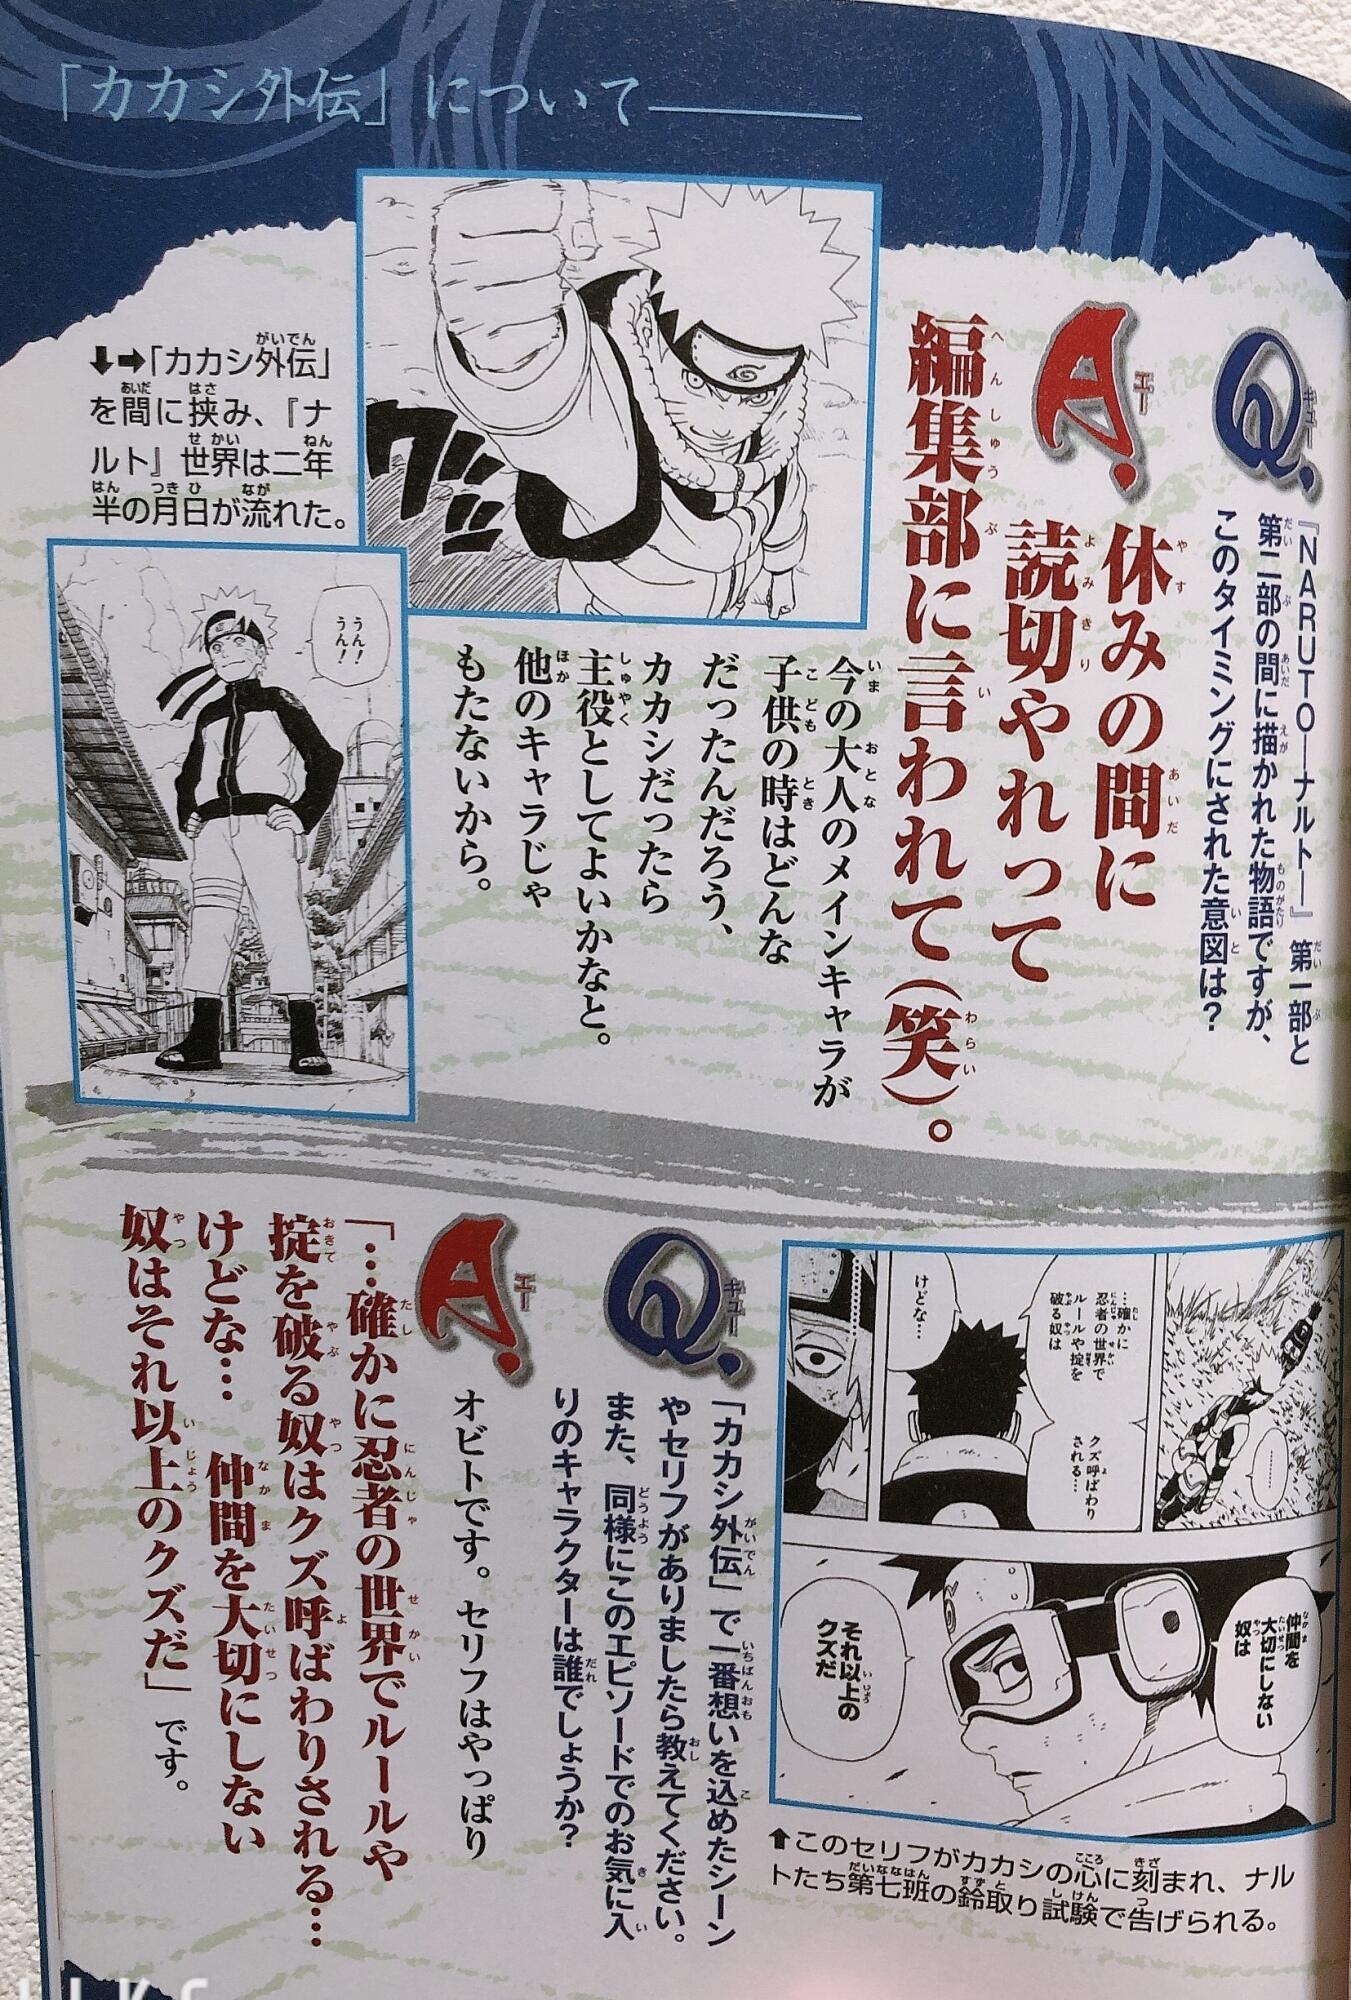 「カカシ外伝」について
『NARUTO―ナルト―』第一部と
第二部の間に描かれた物語ですが、
このタイミングにされた意図は?
休みの間に
読切やれって
編集部に言われて(笑)。
今の大人のメインキャラが
子供の時はどんな
だったんだろう、
カカシだったら
主役としてよいかなと。
他のキャラじゃ
もたないから。
グッ
⬇➡「カカシ外伝」
を間に挟み、『ナ
ルト』世界は二年
半の月日が流れた。
うん!
うん!
…確かに
忍者の世界で
ルールや掟を
破る奴は
クズ呼ばわり
される…
けどな…
仲間を
大切にしない
奴は
それ以上の
クズだ
⬆このセリフがカカシの心に刻まれ、ナル
トたち第七班の鈴取り試験で告げられる。
Q.
「カカシ外伝」で一番想いを込めたシーン
やセリフがありましたら教えてください。
また、同様にこのエピソードでのお気に入
りのキャラクターは誰でしょうか?
A.
オビトです。セリフはやっぱり
「…確かに忍者の世界でルールや
掟を破る奴はクズ呼ばわりされる…
けどな… 仲間を大切にしない
奴はそれ以上のクズだ」です。